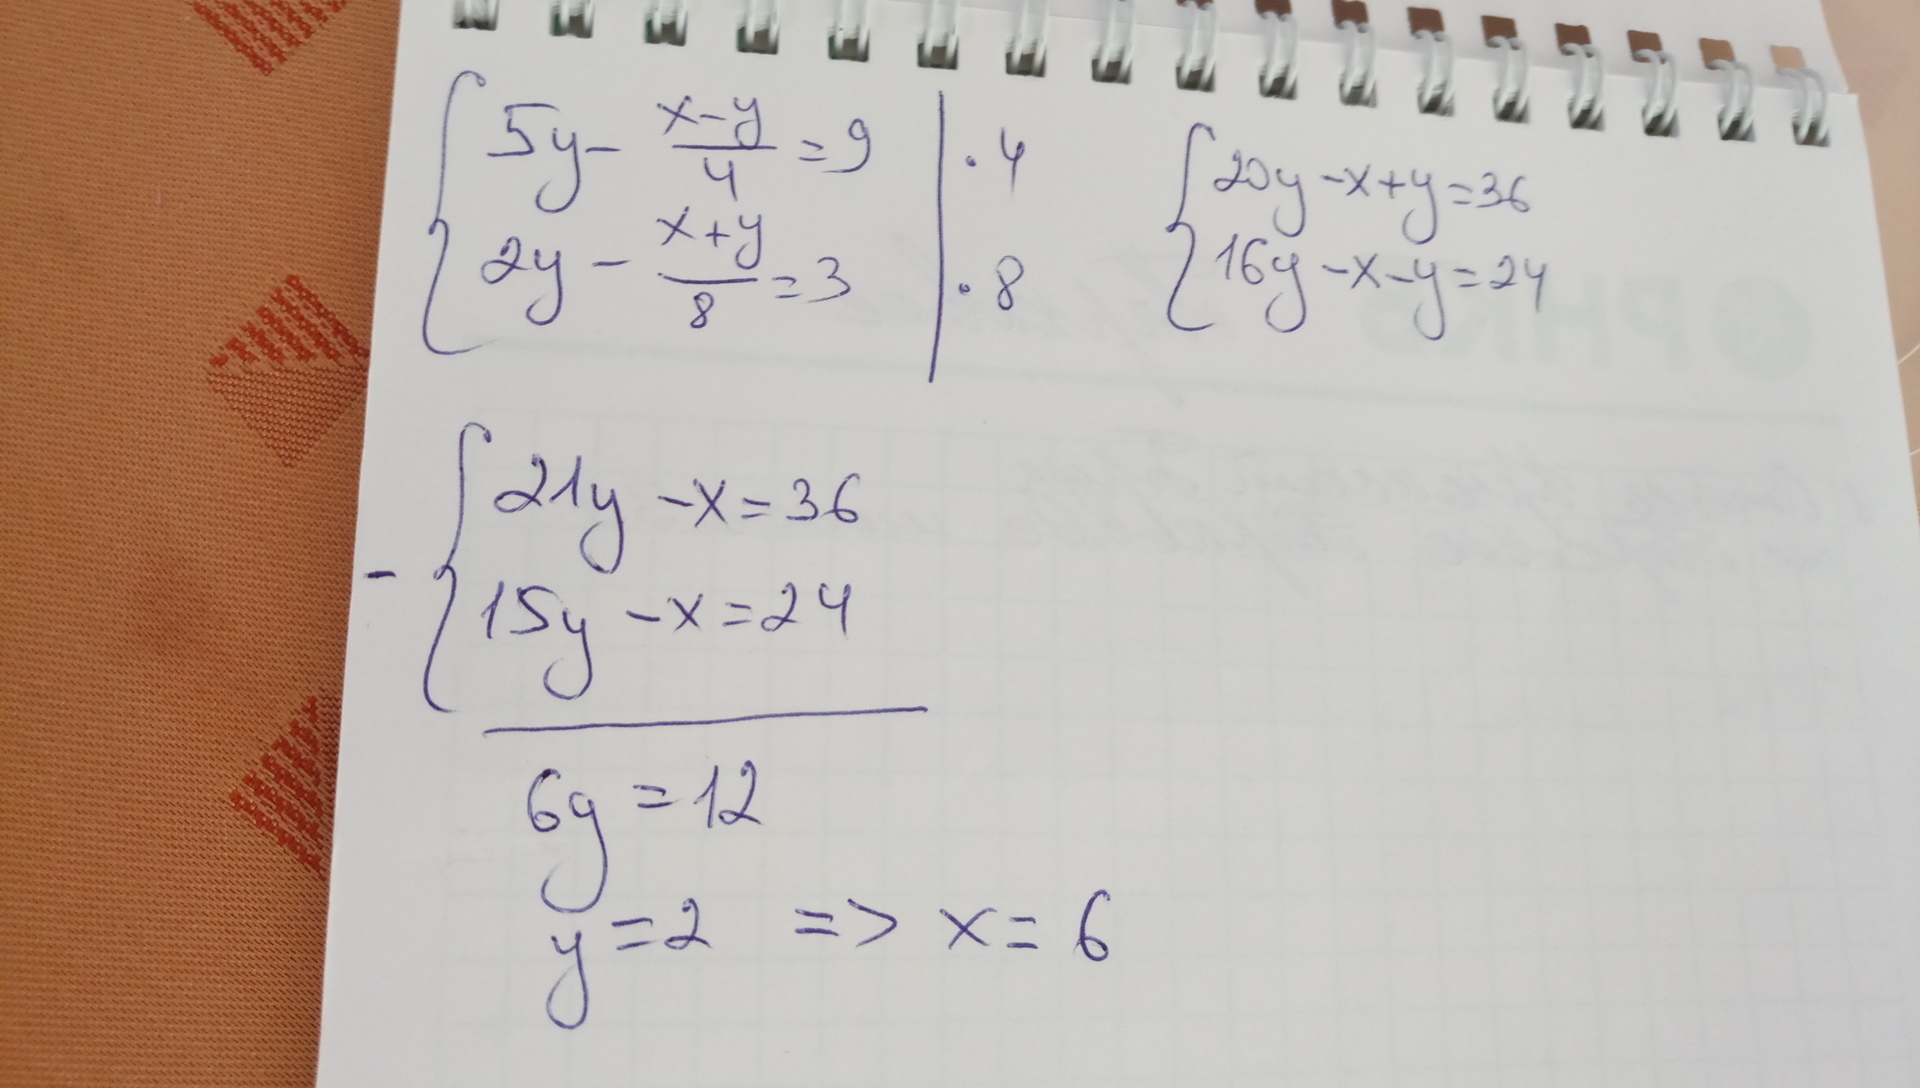 { 5y - (x-y)/4 = 9 | · 4
{ 2y - (x+y)/8 = 3 | · 8
{ 20y - x + y = 36
{ 16y - x - y = 24
- { 21y - x = 36
{ 15y - x = 24
6y = 12
y = 2 => x = 6